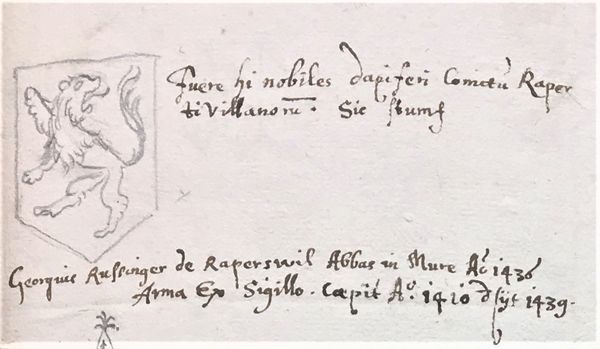 Fuere hi nobiles dapiferi Comitū Raper
tivillanorū. Sic Stumf
Georgius Russinger de Raperswil Abbas in Mure Aͦ 1436
Arma Ex Sigillo. Cœpit Aͦ. 1410 dsijt 1439.